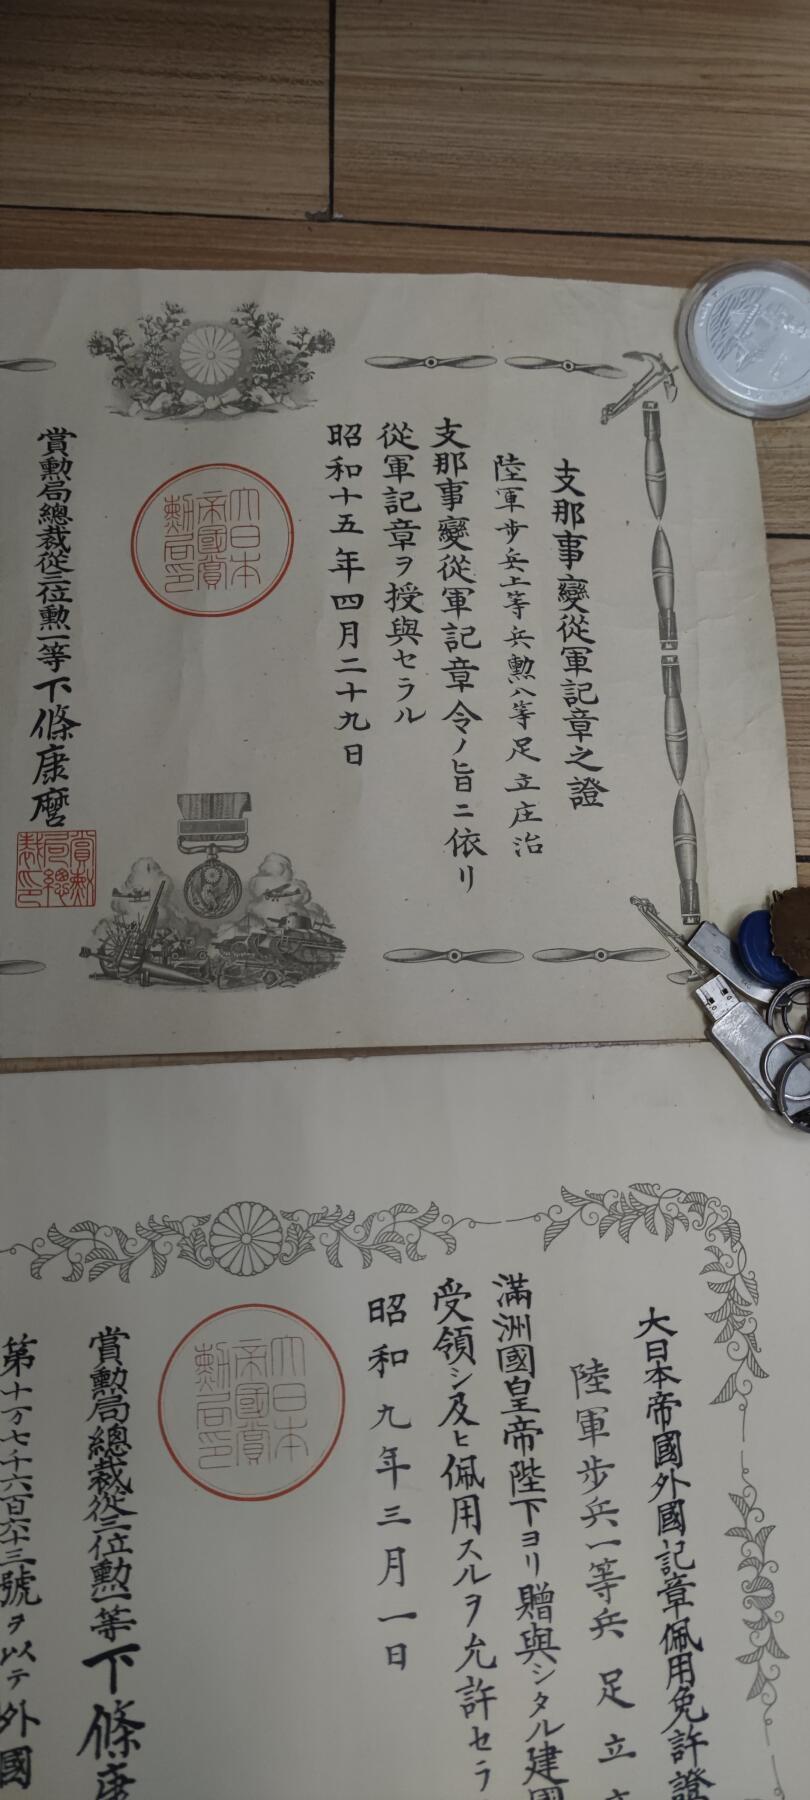 支那事變從軍記章之證
陸軍歩兵上等兵勲八等足立庄治
支那事變從軍記章令ノ旨ニ依リ
從軍記章ヲ授與セラル
昭和十五年四月二十九日
大日本
帝國賞
勲局印
賞勲局總裁從三位勲一等下條康麿
賞勲
局總
裁印
大日本帝國外國記章佩用免許證
陸軍歩兵一等兵足立
滿洲國皇帝陛下ヨリ贈與シタル建國
受領シ及ヒ佩用スルヲ允許セラ
昭和九年三月一日
大日本
帝國賞
勲局印
賞勲局總裁從三位勲一等下條康
第十万七千六百六十三號ヲ以テ外國